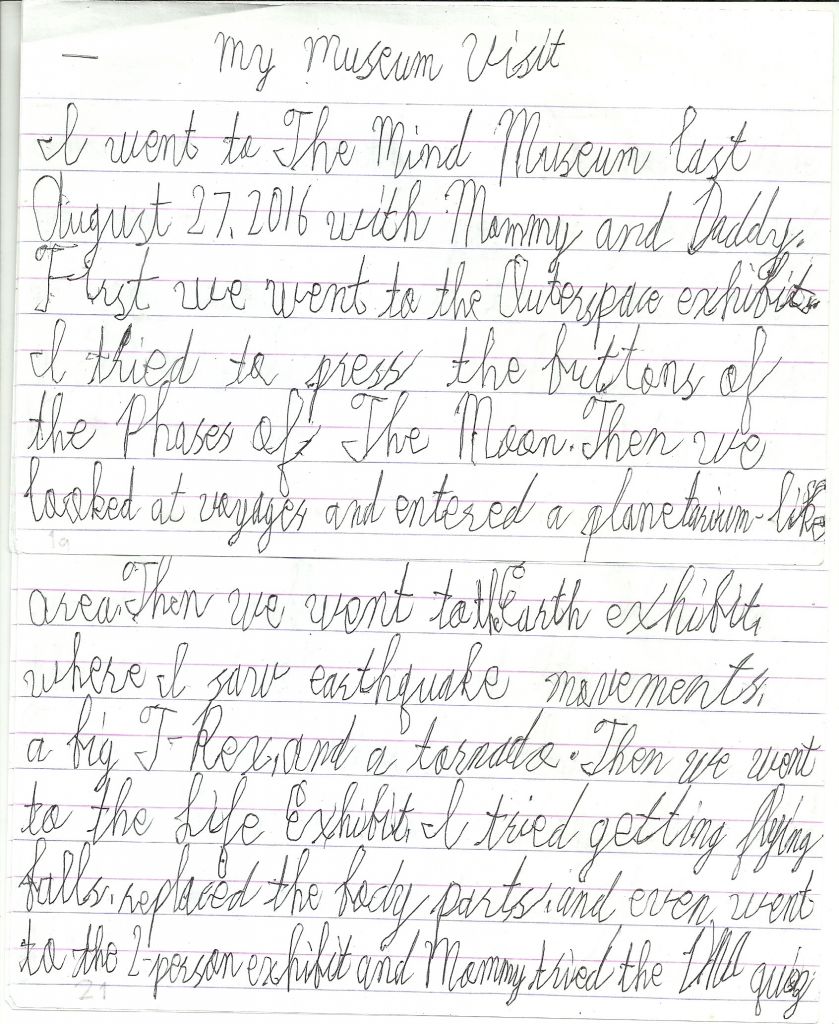 My Museum Visit
I went to The Mind Museum last
August 27, 2016 with Mommy and Daddy.
First we went to the Outerspace exhibit.
I tried to press the buttons of
the Phases of The Moon. Then we
looked at voyages and entered a planetarium-like
1a
area. Then we went to the Earth exhibit,
where I saw earthquake movements,
a big T-Rex, and a tornado. Then we went
to the Life Exhibit. I tried getting flying
balls, replaced the body parts, and even went
to the 2-person exhibit and Mommy tried the quiz
21